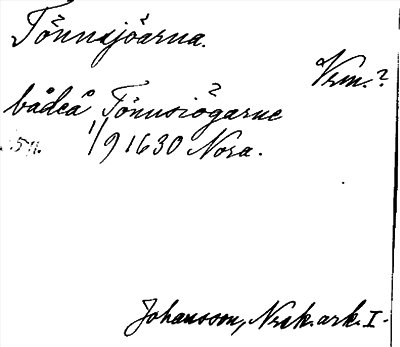 Tönnsjöarna.
Vrm.?
bådeå Tönnsiögarne
1/9 1630 Nora.
Johansson, Norsk. ark. I.